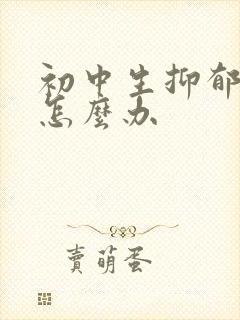 初中生抑郁
怎麼办
賣萌蛋